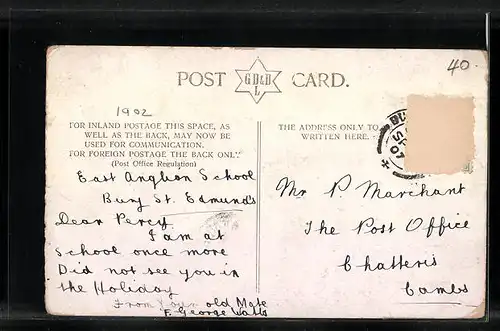 40
POST CARD.
G.D.&D
L
1902
FOR INLAND POSTAGE THIS SPACE, AS
WELL AS THE BACK, MAY NOW BE
USED FOR COMMUNICATION.
FOR FOREIGN POSTAGE THE BACK ONLY.
(Post Office Regulation)
THE ADDRESS ONLY TO
WRITTEN HERE.
East Anglian School
Bury St. Edmunds
Dear Percy
I am at
School once more
Did not see you in
the Holiday
From Your old Mate
F. George Watts
Mr P. Marchant
The Post Office
Chatteris
Cambs